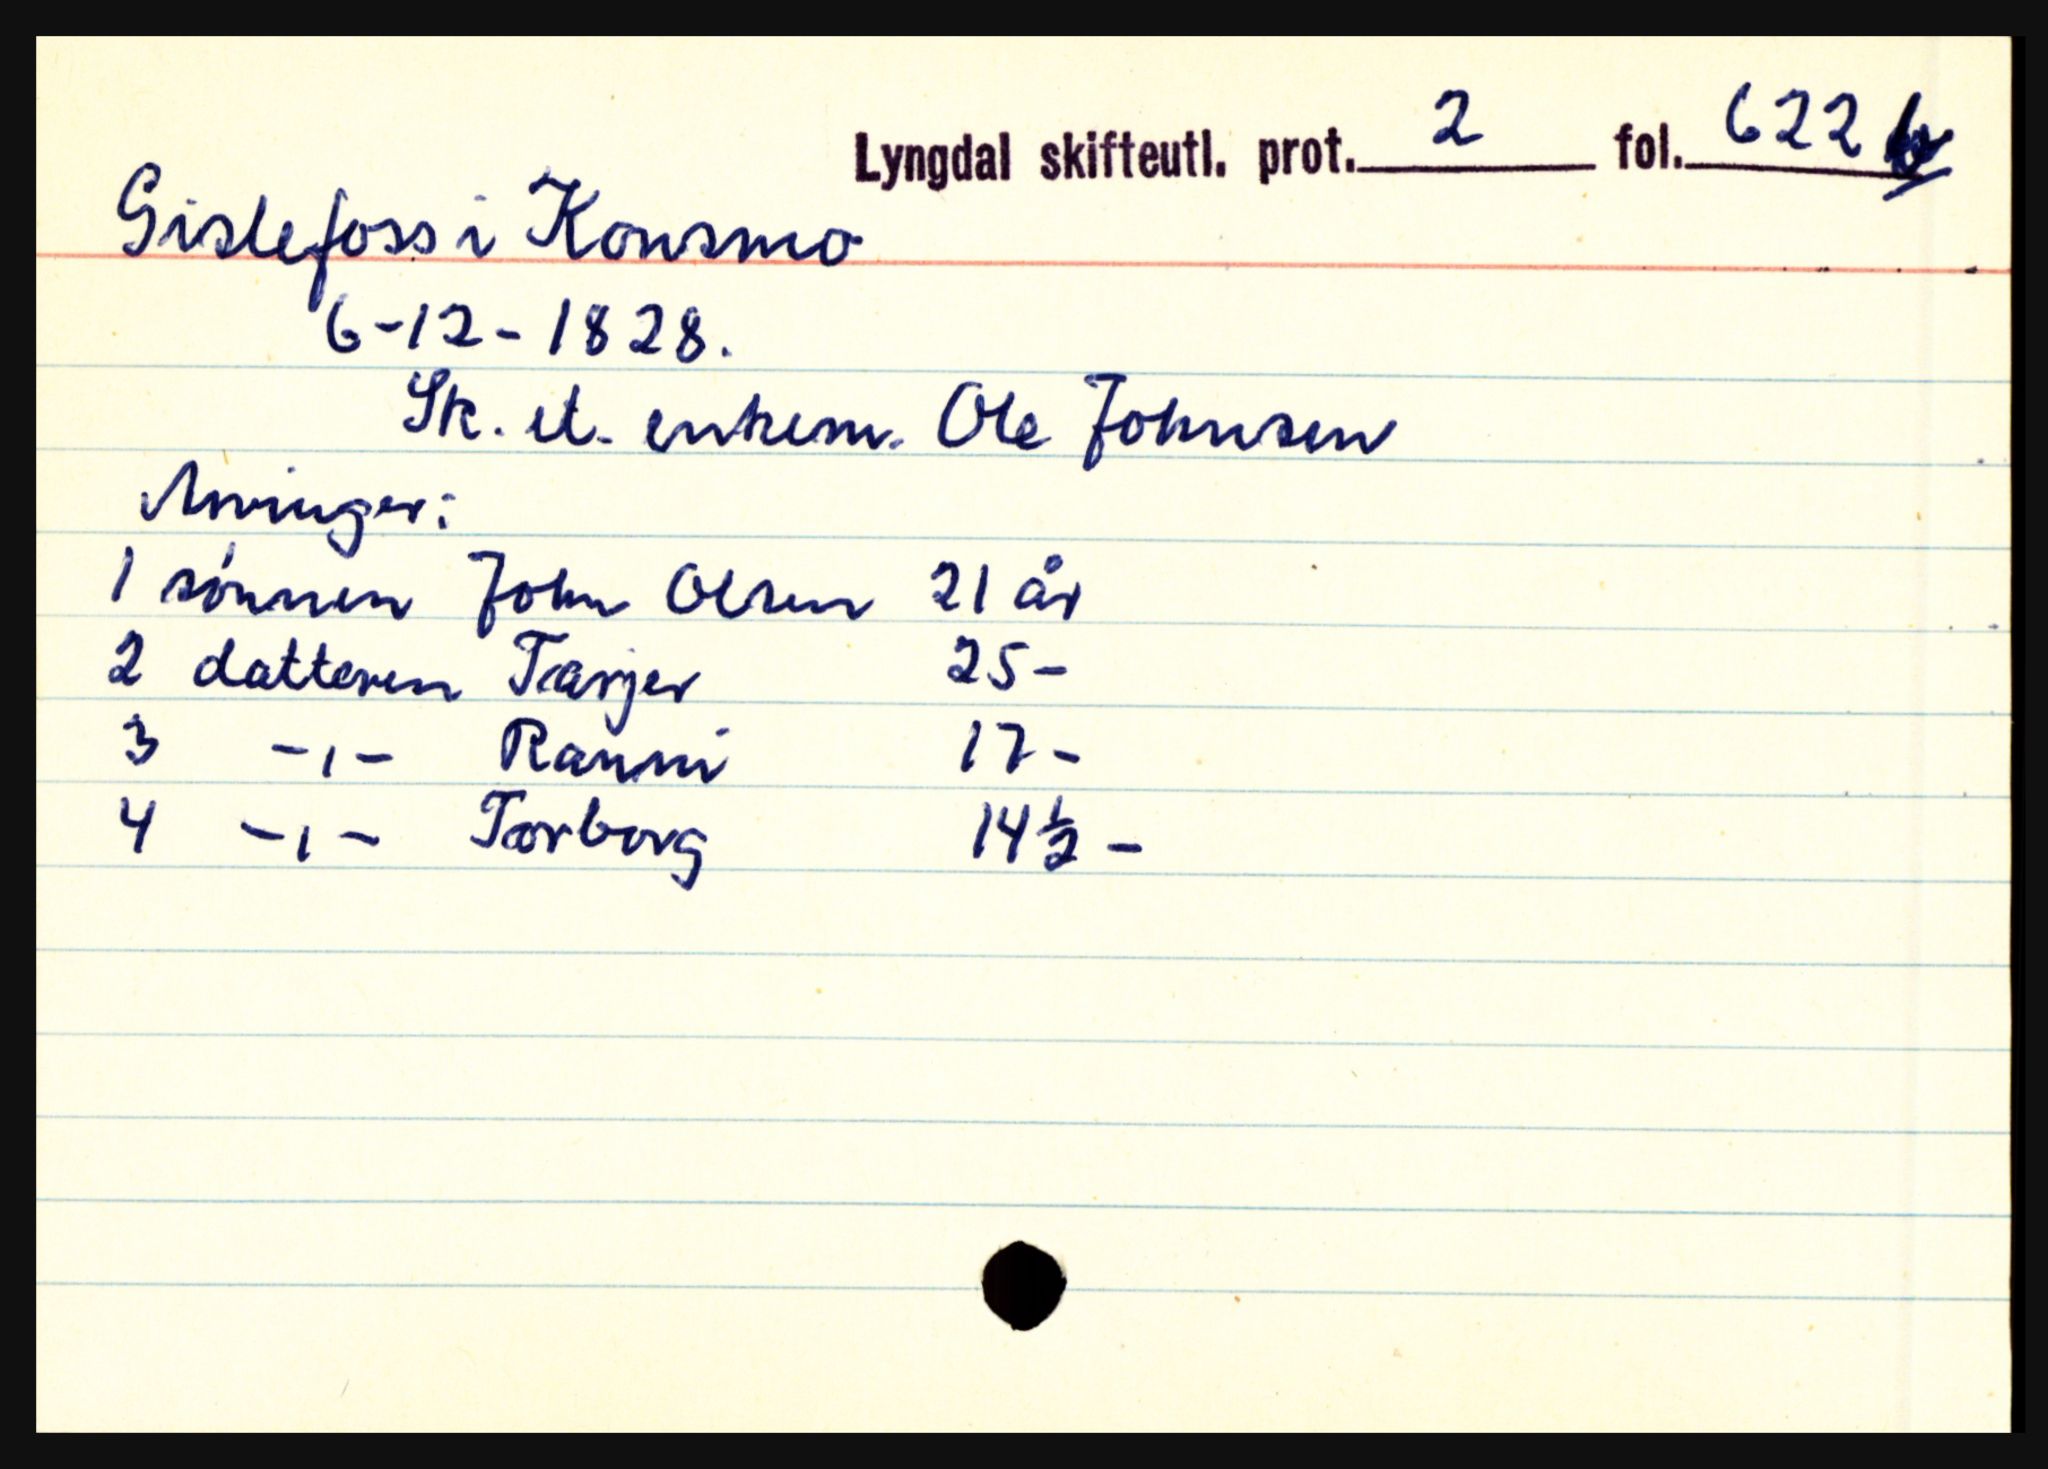 Lyngdal skifteutl. prot. 2 fol. 622 b
Gislefoss i Konsmo
6-12-1828.
Sk. et. enkem. Ole Johnsen
Arvinger:
1 sønnen John Olsen 21 år
2 datteren Tarjer 25 -
3 -,- Ranni 17 -
4 -,- Torborg 14 ½ -